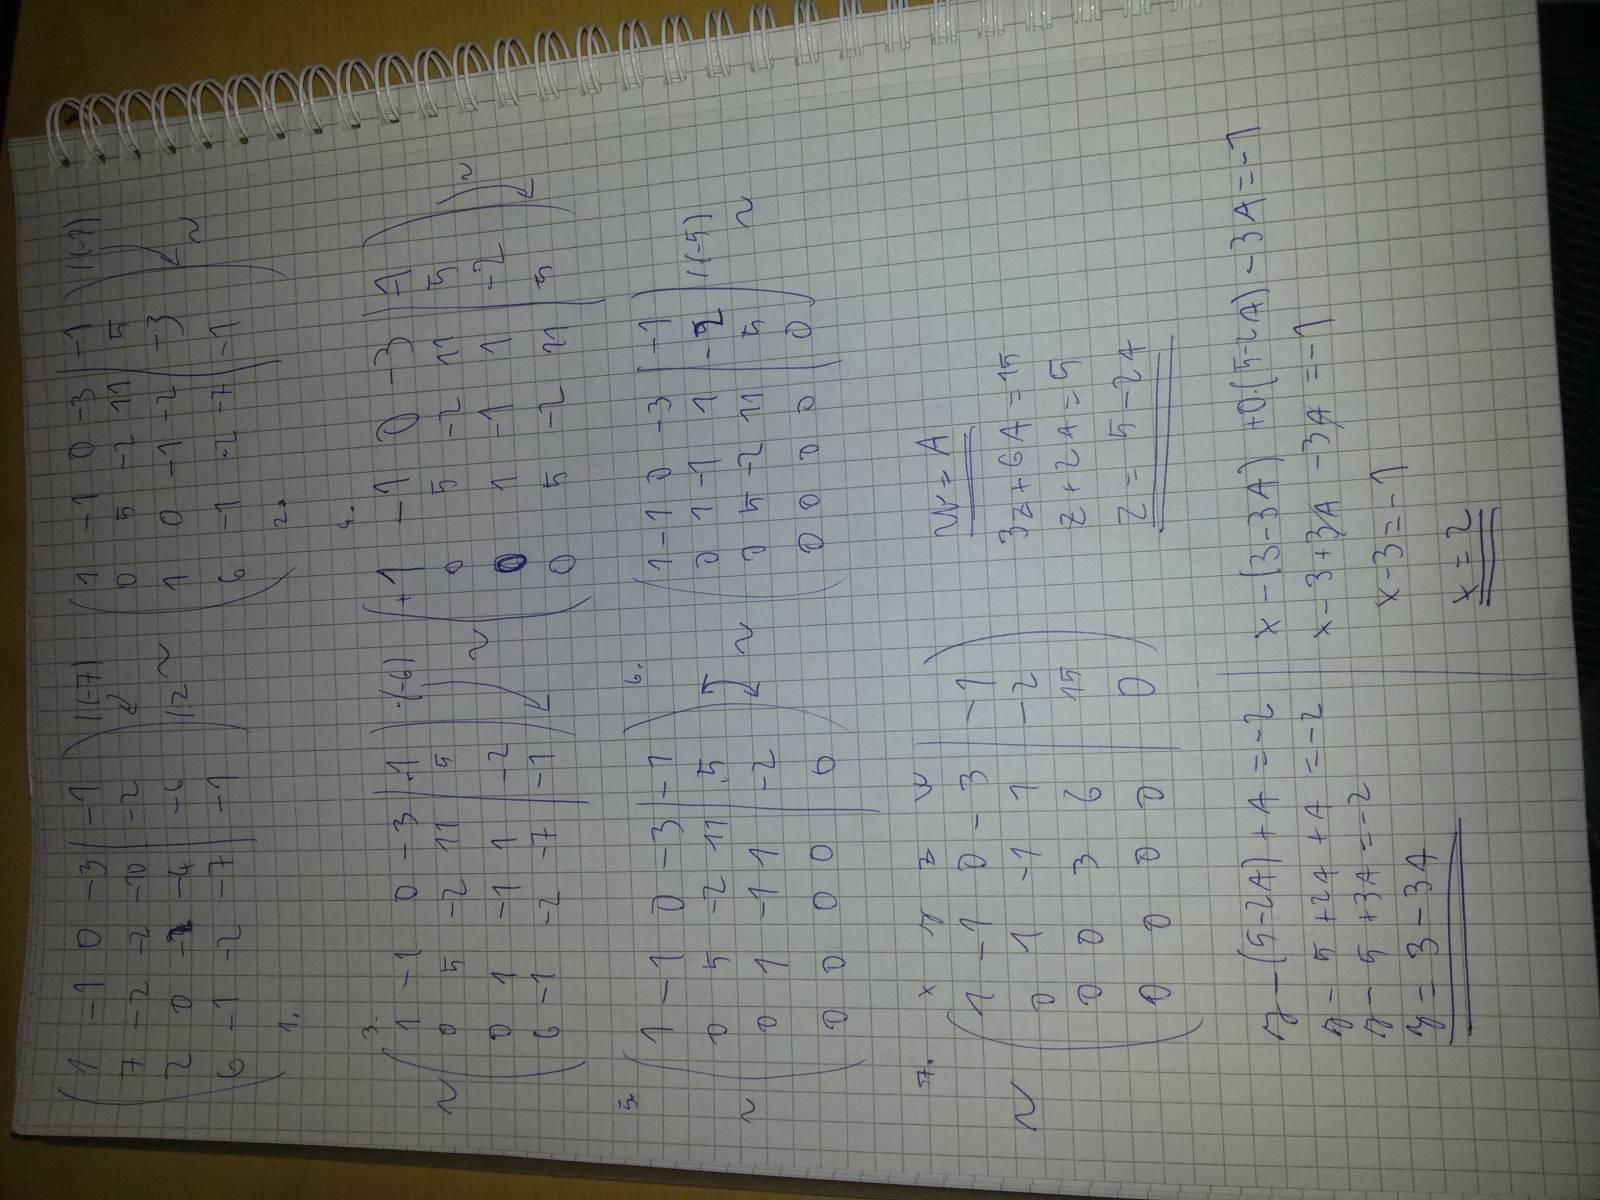 ( 1 -1 0 -3 | -1 ) |(-7)
7 -2 -2 -10 | -2
2 0 -2 -4 | -6 |:2 ~
6 -1 -2 -7 | -1
1.
( 1 -1 0 -3 | -1 ) |(-1)
0 5 -2 11 | 5
1 0 -1 -2 | -3 ~
6 -1 -2 -7 | -1
2.
3.
~ ( 1 -1 0 -3 | -1 ) ·(-6)
0 5 -2 11 | 5
0 1 -1 1 | -2 ~
6 -1 -2 -7 | -1
4.
( +1 -1 0 -3 | -1 )
0 5 -2 11 | 5 ~
0 1 -1 1 | -2
0 5 -2 11 | 5
5.
( 1 -1 0 -3 | -1 )
0 5 -2 11 | 5
~ 0 1 -1 1 | -2 ~
0 0 0 0 | 0
6.
( 1 -1 0 -3 | -1 )
0 1 -1 1 | -2 |(-5)
0 5 -2 11 | 5 ~
0 0 0 0 | 0
7.
x y z w
( 1 -1 0 -3 | -1 )
~ 0 1 -1 1 | -2
0 0 3 6 | 15
0 0 0 0 | 0
W = A
3z + 6A = 15
z + 2A = 5
z = 5 - 2A
y - (5-2A) + A = -2
y - 5 + 2A + A = -2
y - 5 + 3A = -2
y = 3 - 3A
x - (3-3A) + 0·(5-2A) - 3A = -1
x - 3 + 3A - 3A = -1
x - 3 = -1
x = 2